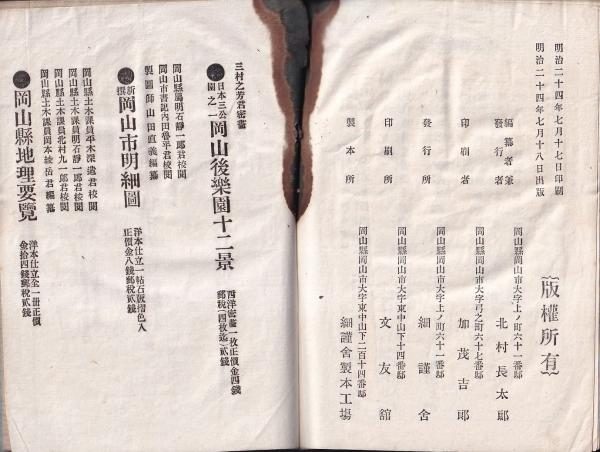 明治二十四年七月十七日印刷
明治二十四年七月十八日出版
版權所有
編纂者兼
發行者
岡山縣岡山市大字上ノ町六十一番邸
北村長太郎
印刷者
岡山縣岡山市大字弓之町六十七番邸
加茂吉郎
發行所
岡山縣岡山市大字上ノ町六十一番邸
細謹舍
印刷所
岡山縣岡山市大字東中山下十四番邸
文友舘
製本所
岡山縣岡山市大字東中山下二百十四番邸
細謹舍製本工塲
三村之芳君密畵
日本三公
園之一
岡山後樂園十二景
西洋密畵一枚正價金四錢
郵稅(四枚迄)貳錢
岡山縣屬明石靜一郎君校閱
岡山市書記內田魯平君校閱
製圖師山田直義編纂
新撰
岡山市明細圖
洋本仕立一帖石版摺色入
正價金八錢郵稅貳錢
岡山縣土木課員平木深造君校閱
岡山縣土木課員明石靜一郎君校閱
岡山縣土木課員北村九一郎君校閱
岡山縣土木課員岡本綾岳君編纂
岡山縣地理要覽
洋本仕立全一册正價
金拾四錢郵稅貳錢